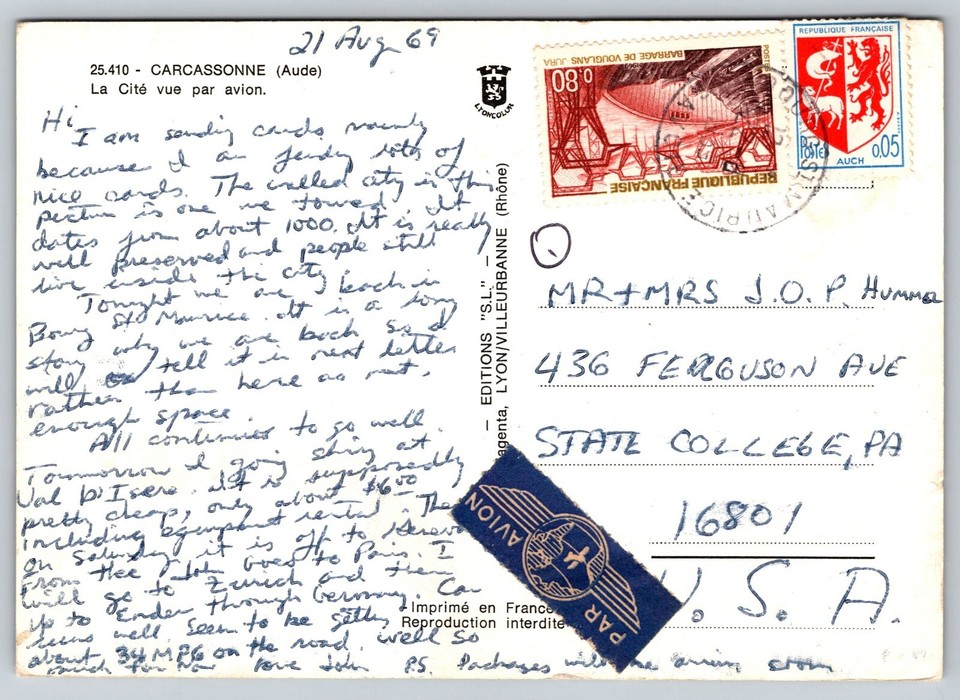 21 Aug 69
25.410 - CARCASSONNE (Aude)
La Cité vue par avion.
LYONCOLOR
Hi
I am sending cards mainly
because I am finding lots of
nice cards. The walled city in this
picture is one we toured. It
dates from about 1000. It is really
well preserved and people still
live inside the city.
Tonight we are back in
Bourg St Maurice. It is a long
story why we are back so I
will tell it in next letter
rather than here as not
enough space.
All continues to go well.
Tommorrow I going skiing at
Val D'Isere. It is supposedly
pretty cheap, only about $6.00
including equipment rental. Then
on Saturday it is off to Geneva
From there John goes to Paris. I
will go to Zurich and then
up to Emden through Germany. Car
runs well seem to be getting
about 34 MPG on the road. Well so
much for now Love John
P.S. Packages will be arriving
- EDITIONS "S.L." -
agenta, LYON/VILLEURBANNE (Rhône)
Imprimé en France
Reproduction interdite
0.80
BARRAGE DE VOUGLANS JURA
POSTES
REPUBLIQUE FRANÇAISE
REPUBLIQUE FRANÇAISE
POSTES
AUCH
0,05
BOURG ST MAURICE
MR + MRS J.O.P. HUMMEL
436 FERGUSON AVE
STATE COLLEGE, PA
16801
U. S. A.
PAR AVION